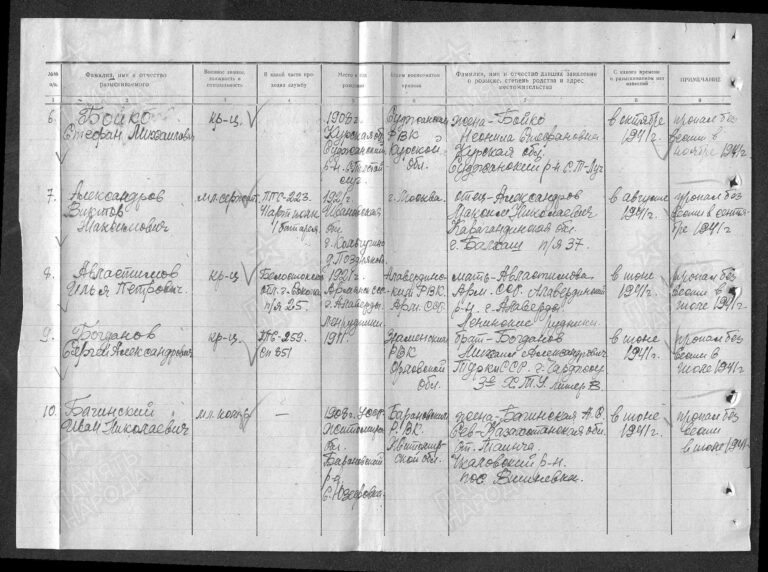 №№ п/п
Фамилия, имя и отчество разыскиваемого
Военное звание, должность и специальность
В какой части проходил службу
Место и год рождения
Каким военкоматом призван
Фамилия, имя и отчество давших заявление о розыске, степень родства и адрес местожительства
С какого времени о разыскиваемом нет известий
ПРИМЕЧАНИЕ
1 2 3 4 5 6 7 8 9
6. Бойко
Стефан Михайлович
кр-ц.
1908 г.
Курская об.
Суджанский
р-н
Суджанский
РВК
Курской
обл.
жена-Бойко
Неонила Стефановна
Курская обл.
Суджанский р-н
в сентябре
1941 г.
пропал без
вести в
ноябре 1941 г.
7. Александров
Виктор
Максимович
мл. сержант
ППС-223
1 батарея
1921 г.
обл.
г. Кольчугино
г. Москва.
отец-Александров
Максим Николаевич
Карагандинская обл.
г. Балхаш п/я 37.
в августе
1941 г.
пропал без
вести в сентя-
бре 1941 г.
8. Авластимов
Илья Петрович
кр-ц
Белостокская
обл.
п/я 25.
1921 г.
Армян. ССР
г. Алаверды
Ленрудники
Алавердин-
ский РВК.
Арм. ССР.
мать-Авластимова
Арм. ССР. Алавердинский
р-н. г. Алаверды
Ленинские рудники.
в июне
1941 г.
пропал без
вести в
июле 1941 г.
9. Богданов
Сергей Александрович
кр-ц.
ППС-259
сп 351
1911.
Знаменский
РВК
Орловской
обл.
брат-Богданов
Михаил Александрович
Туркм ССР. г. Чарджоу
в июне
1941 г.
пропал без
вести в
июле 1941 г.
10. Багинский
Иван Николаевич
мл. ком.
—
1908 г. УССР
Житомир.
обл.
Барановский
р-н
Барановский
РВК.
Житомир-
ской обл.
жена-Багинская А. С.
Сев-Казахстанская обл.
Чкаловский р-н.
пос. Вишневка.
в июне
1941 г.
пропал без
вести
в июле 1941
ПАМЯТЬ
НАРОДА